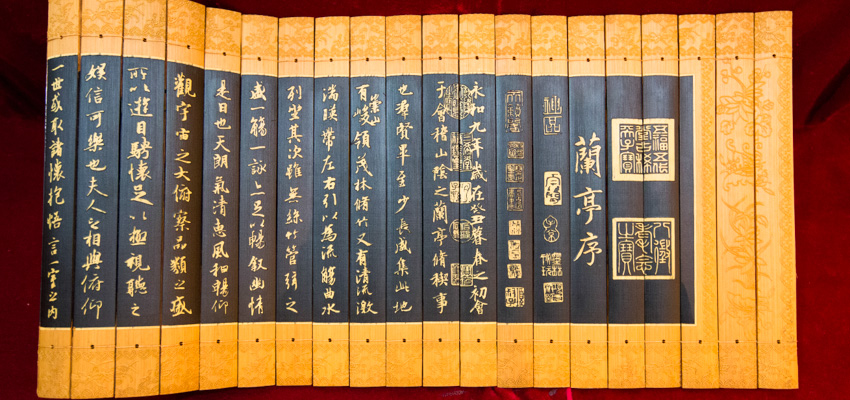 五福五代堂古稀天子寶
八徵耄念之寶
蘭亭序
神品
永和九年歲在癸丑暮春之初會
于會稽山陰之蘭亭脩稧事
也羣賢畢至少長咸集此地
有崇山峻領茂林脩竹又有清流激
湍暎帶左右引以為流觴曲水
列坐其次雖無絲竹管弦之
盛一觴一詠上足以暢敘幽情
是日也天朗氣清惠風和暢仰
觀宇宙之大俯察品類之盛
所以遊目騁懷足以極視聽之
娛信可樂也夫人之相與俯仰
一世或取諸懷抱悟言一室之內